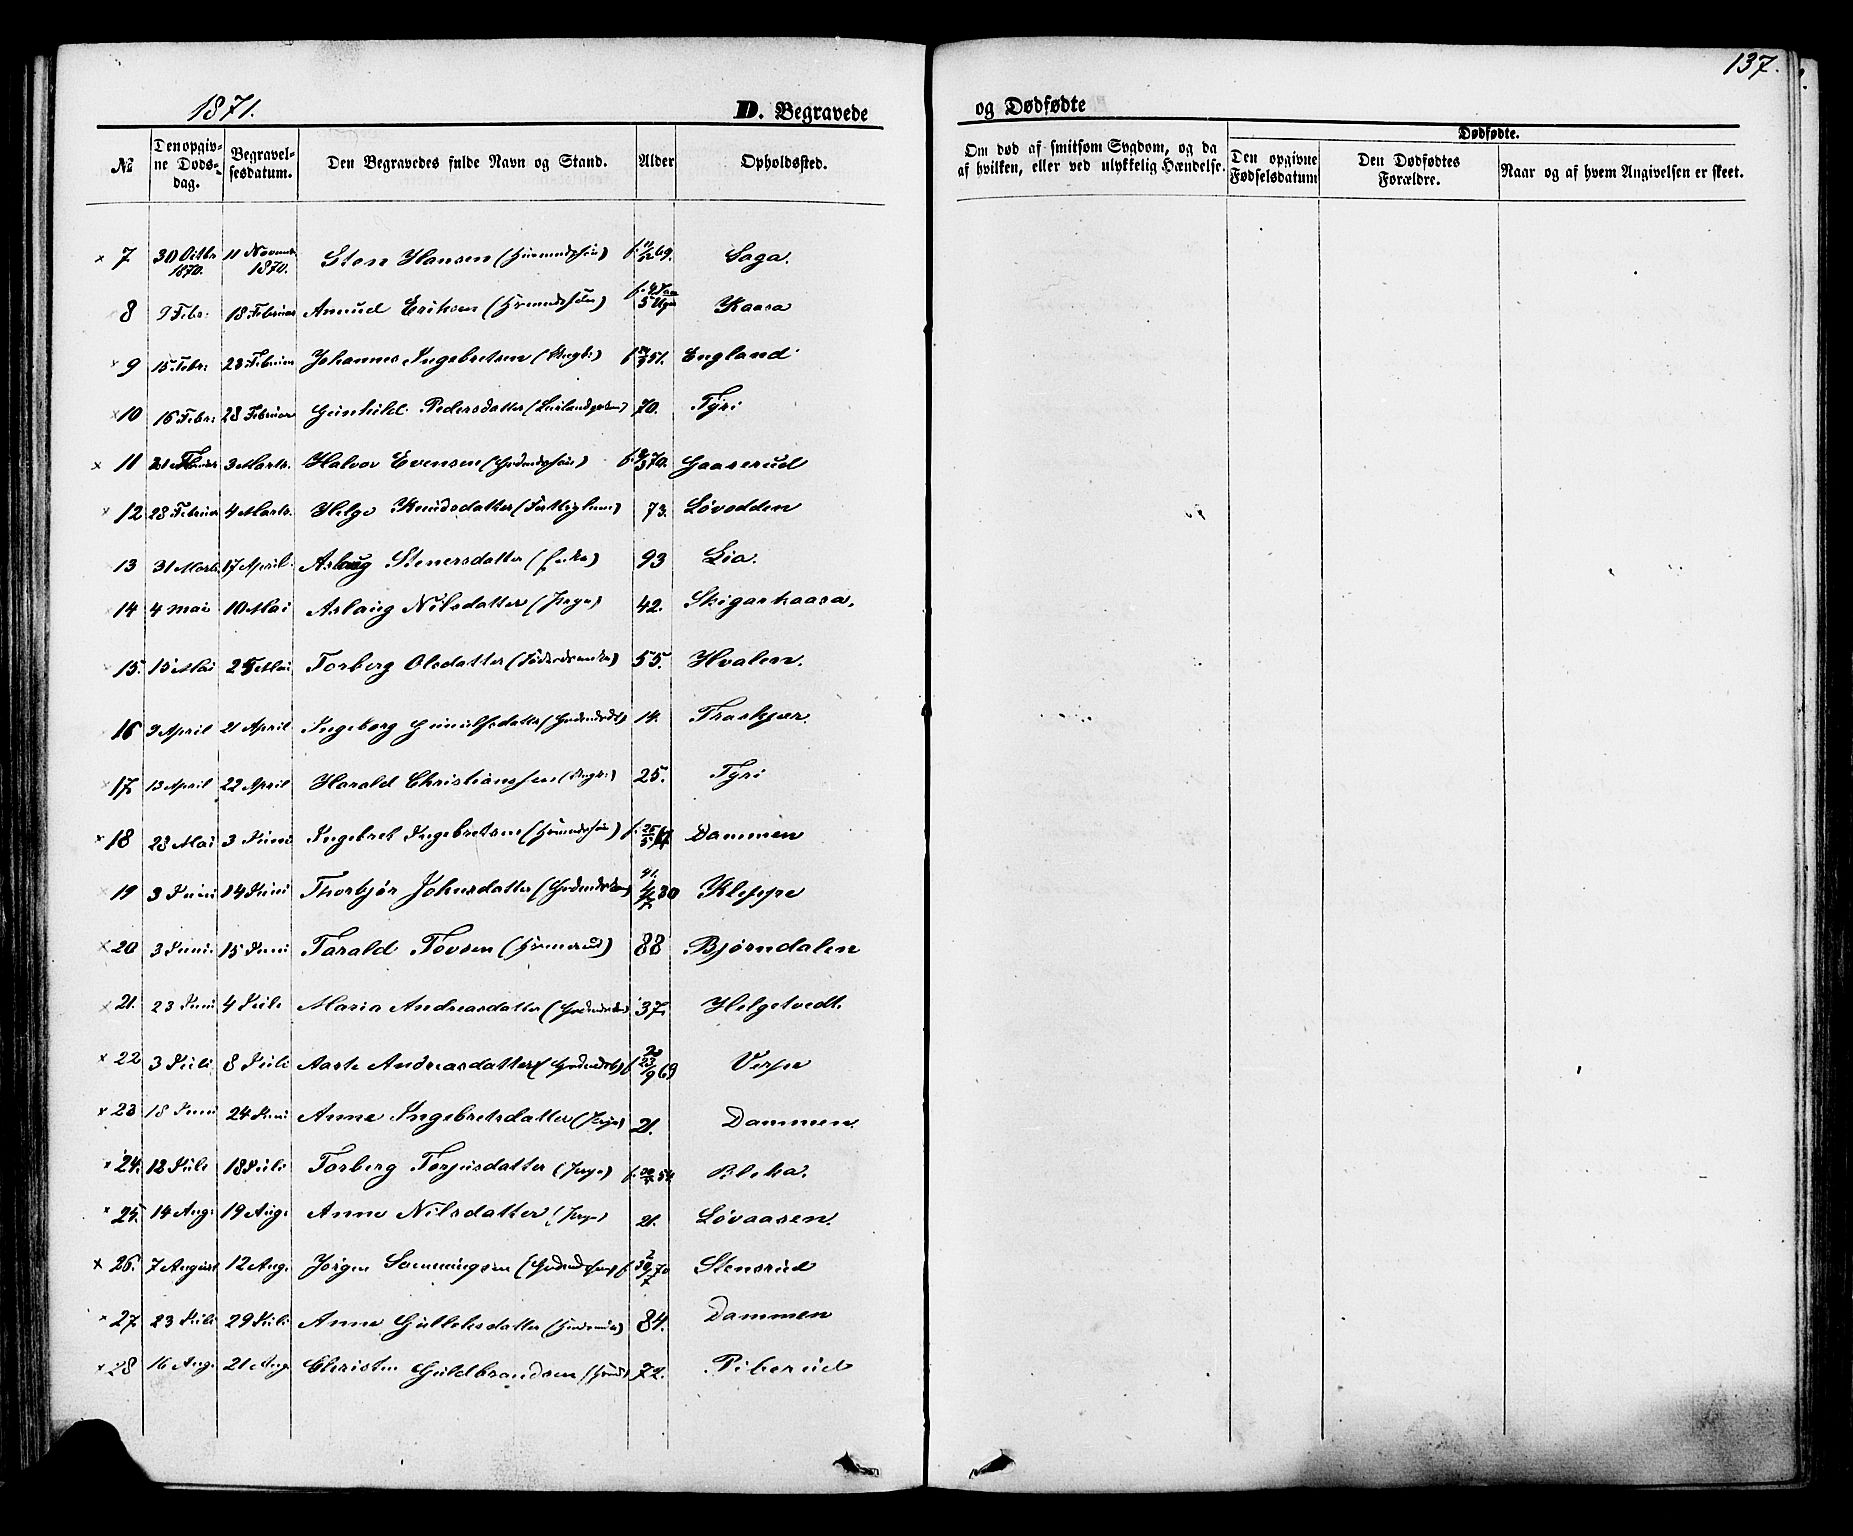 137.
1871.
D. Begravede og Dødfødte
№ Den opgivne Dødsdag. Begravelsesdatum. Den Begravedes fulde Navn og Stand. Alder Opholdssted. Om død af smitsom Sygdom, og da af hvilken, eller ved ulykkelig Hændelse. Dødfødte. Den opgivne Fødselsdatum Den Dødfødtes Forældre. Naar og af hvem Angivelsen er skeet.
× 7 30 Octbr 1870. 11 Novemb 1870. Sten Hansen f. 69. Saga.
8 9 Febr. 18 Februar Amund Eriksen 5 Uger Kaasa
× 9 15 Febr. 23 Februar Johannes Ingebretsen (Ungk.) f. 51. England
× 10 16 Febr. 28 Februar Gunhild Pedersdatter 70. Tyri
× 11 3 Marts. Halvor Evensen f. 70. Gaaserud
× 12 23 Februar 4 Marts. Helge Knudsdatter 73. Løvodden
13 31 Marts 17 April. Aslaug Stenersdatter (Enke) 93 Lia.
14 4 Mai 10 Mai Aslaug Nilsdatter (Pige) 42. Skigarkaasa.
15. 15 Mai 25 Mai Torberg Olsdatter 55. Hvalen.
16 9 April 21 April Ingeborg 14. Traakjær.
× 17. 13 April 22 April Harald Christianssen (Ungk.) 25. Tyri
× 18 23 Mai 3 Juni Ingebret Ingebretsen Dammen
19 3 Juni 14 Juni Thorbjør Johnsdatter Kleppe
× 20 3 Juni. 15 Juni Tarald Tovsen 88 Bjørndalen
× 21. 23 Juni 4 Juli Maria Andreasdatter 37. Helgetvedt.
× 22 3 Juli 8 Juli Aaste Andreasdatter f. 23/9 69 Verpe
× 23 18 Juni 24 Juni Anne Ingebretsdatter (Pige) 21. Dammen.
× 24. 12 Juli 18 Juli Torberg Torjusdatter (Pige) f. 54. Bleka.
× 25. 14 Aug. 19 Aug. Anne Nilsdatter (Pige) 21. Løvaasen.
× 26. 7 August 12 Aug. Jörgen Svenningsen f. 30/7 70 Stensrud
× 27. 23 Juli 29 Juli Anne Gulleksdatter 84. Dammen
× 28 16 Aug. 21 Aug. Christen Guldbrandsen 72. Piberud